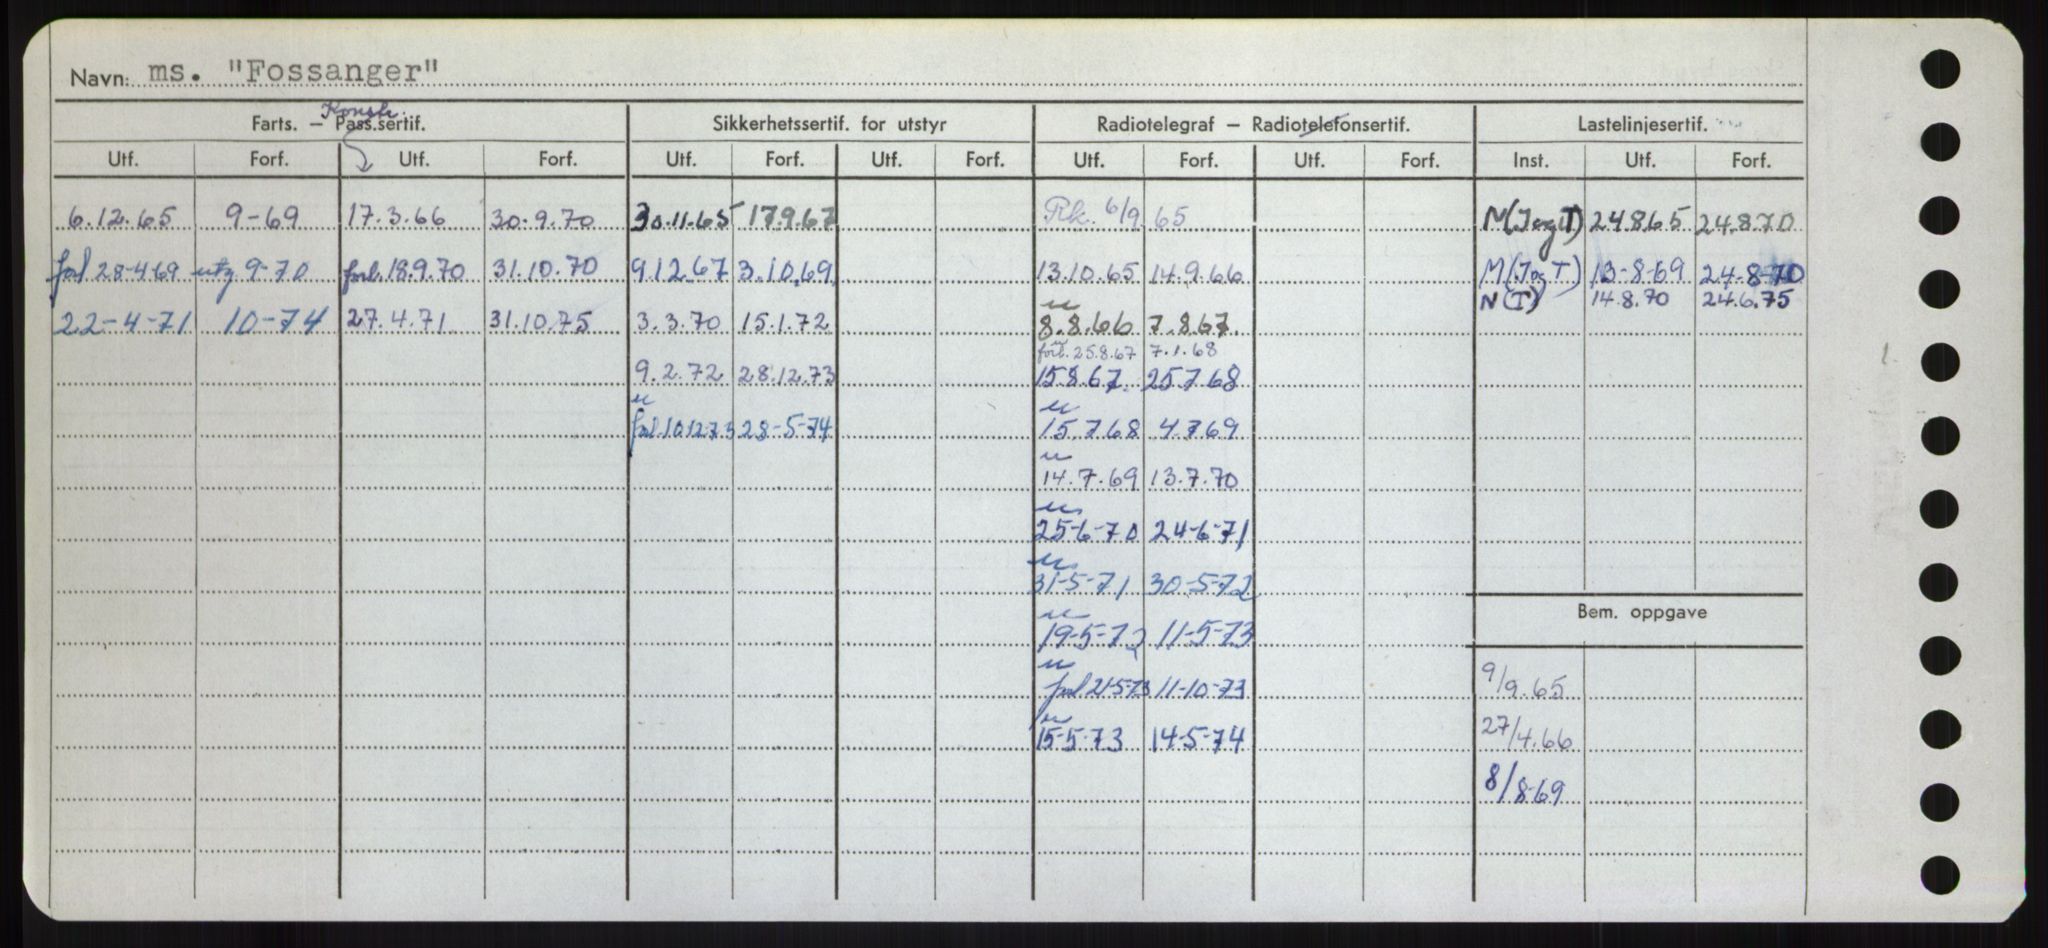 Navn: ms. "Fossanger"
Konstr.
Farts. – Pass.sertif. Sikkerhetssertif. for utstyr Radiotelegraf – Radiotelefonsertif. Lastelinjesertif.
Utf. Forf. Utf. Forf. Utf. Forf. Utf. Forf. Utf. Forf. Utf. Forf. Inst. Utf. Forf.
6.12.65 9-69 17.3.66 30.9.70 30.11.65 17.9.67 Rk. 6/9.65 N(JogT) 24.8.65 24.8.70
forl 28-4-69 utg 9-70 forl. 18.9.70 31.10.70 9.12.67 3.10.69 13.10.65 14.9.66 M(JogT) 13-8-69 24-8-70
N(I) 14.8.70 24.6.75
22-4-71 10-74 27.4.71 31.10.75 3.3.70 15.1.72 8.8.66 7.8.67
forl. 25.8.67 7.1.68
9.2.72 28.12.73 15.8.67 25.7.68
forl. 10.12.73 28-5-74 15.7.68 4.7.69
14.7.69 13.7.70
25-6-70 24-6-71
31-5-71 30-5-72
Bem. oppgave
19-5-72 11-5-73
forl 21-5-73 11-10-73 9/9.65
15-5-73 14-5-74 27/4.66
8/8-69